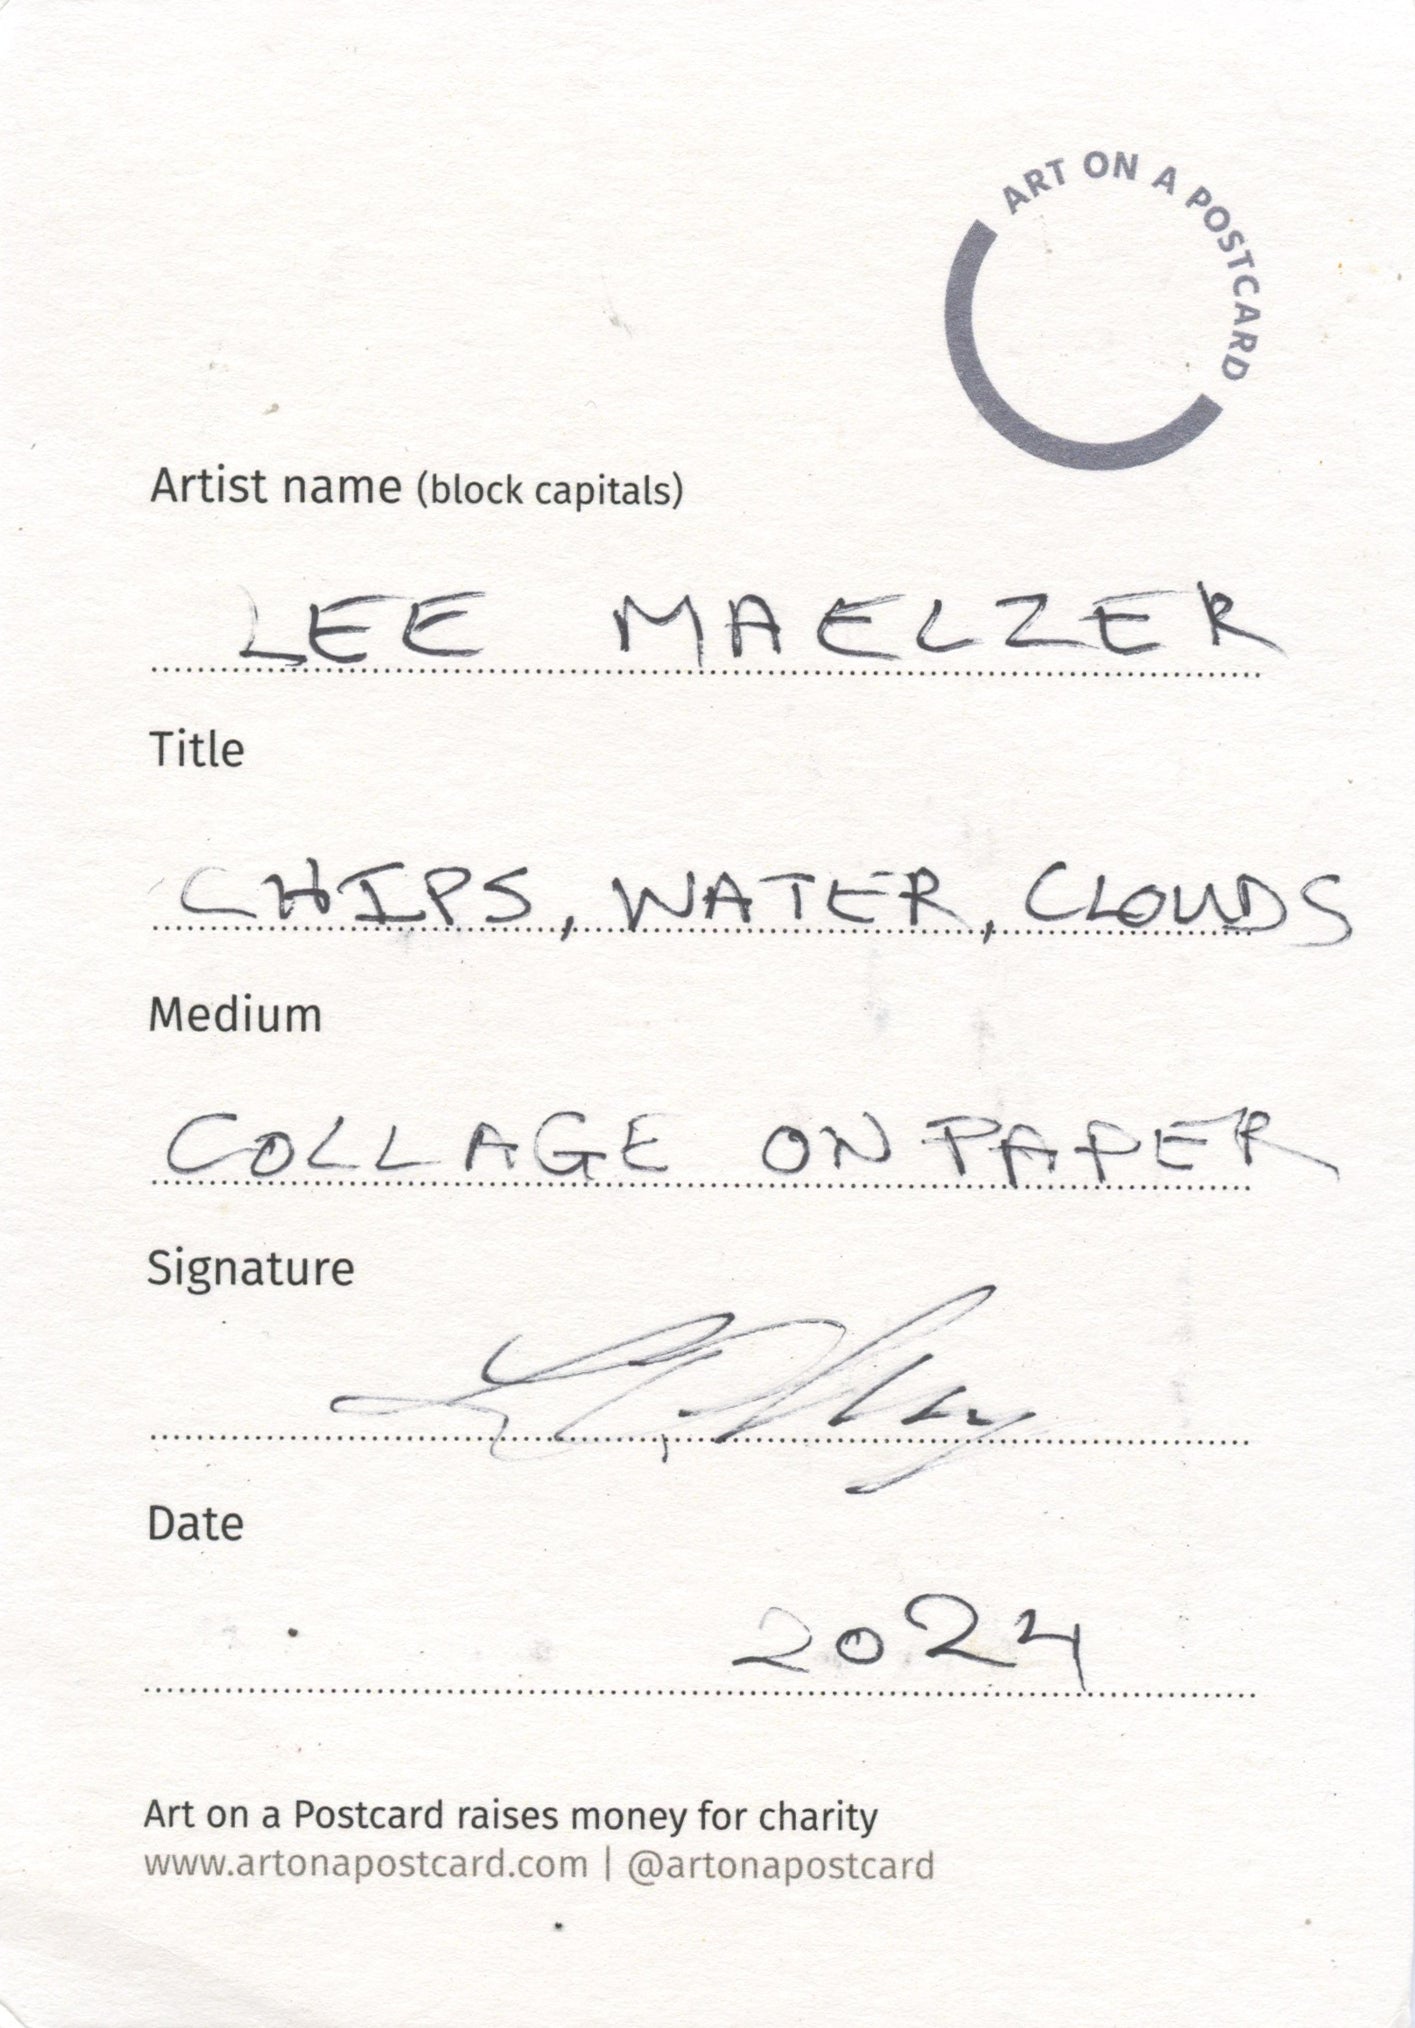 ART ON A POSTCARD
Artist name (block capitals)
LEE MAELZER
Title
CHIPS, WATER, CLOUDS
Medium
COLLAGE ON PAPER
Signature
Date
2024
Art on a Postcard raises money for charity
www.artonapostcard.com | @artonapostcard